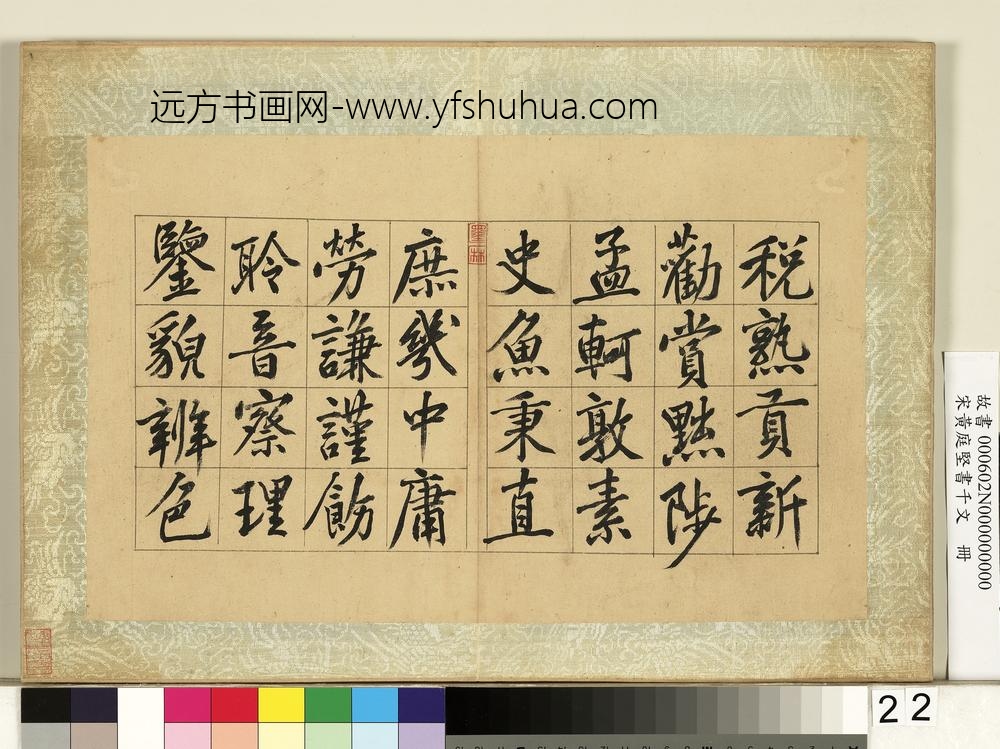 远方书画网-www.yfshuhua.com
税熟貢新
勸賞黜陟
孟軻敦素
史魚秉直
庶幾中庸
勞謙謹勑
聆音察理
鑒貌辨色
故書 000602N000000000
宋黃庭堅書千文 冊
22